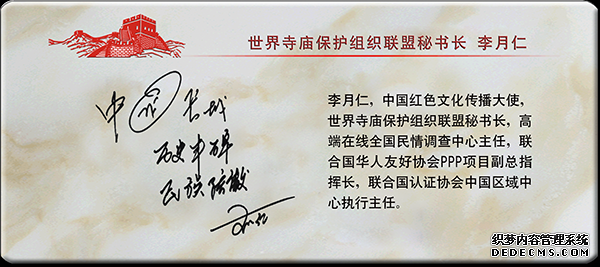 世界寺庙保护组织联盟秘书长 李月仁
中 长城
历史丰碑
民族
李月仁，中国红色文化传播大使，
世界寺庙保护组织联盟秘书长，高
端在线全国民情调查中心主任，联
合国华人友好协会PPP项目副总指
挥长，联合国认证协会中国区域中
心执行主任。
织梦内容管理系统
DEDECMS.COM